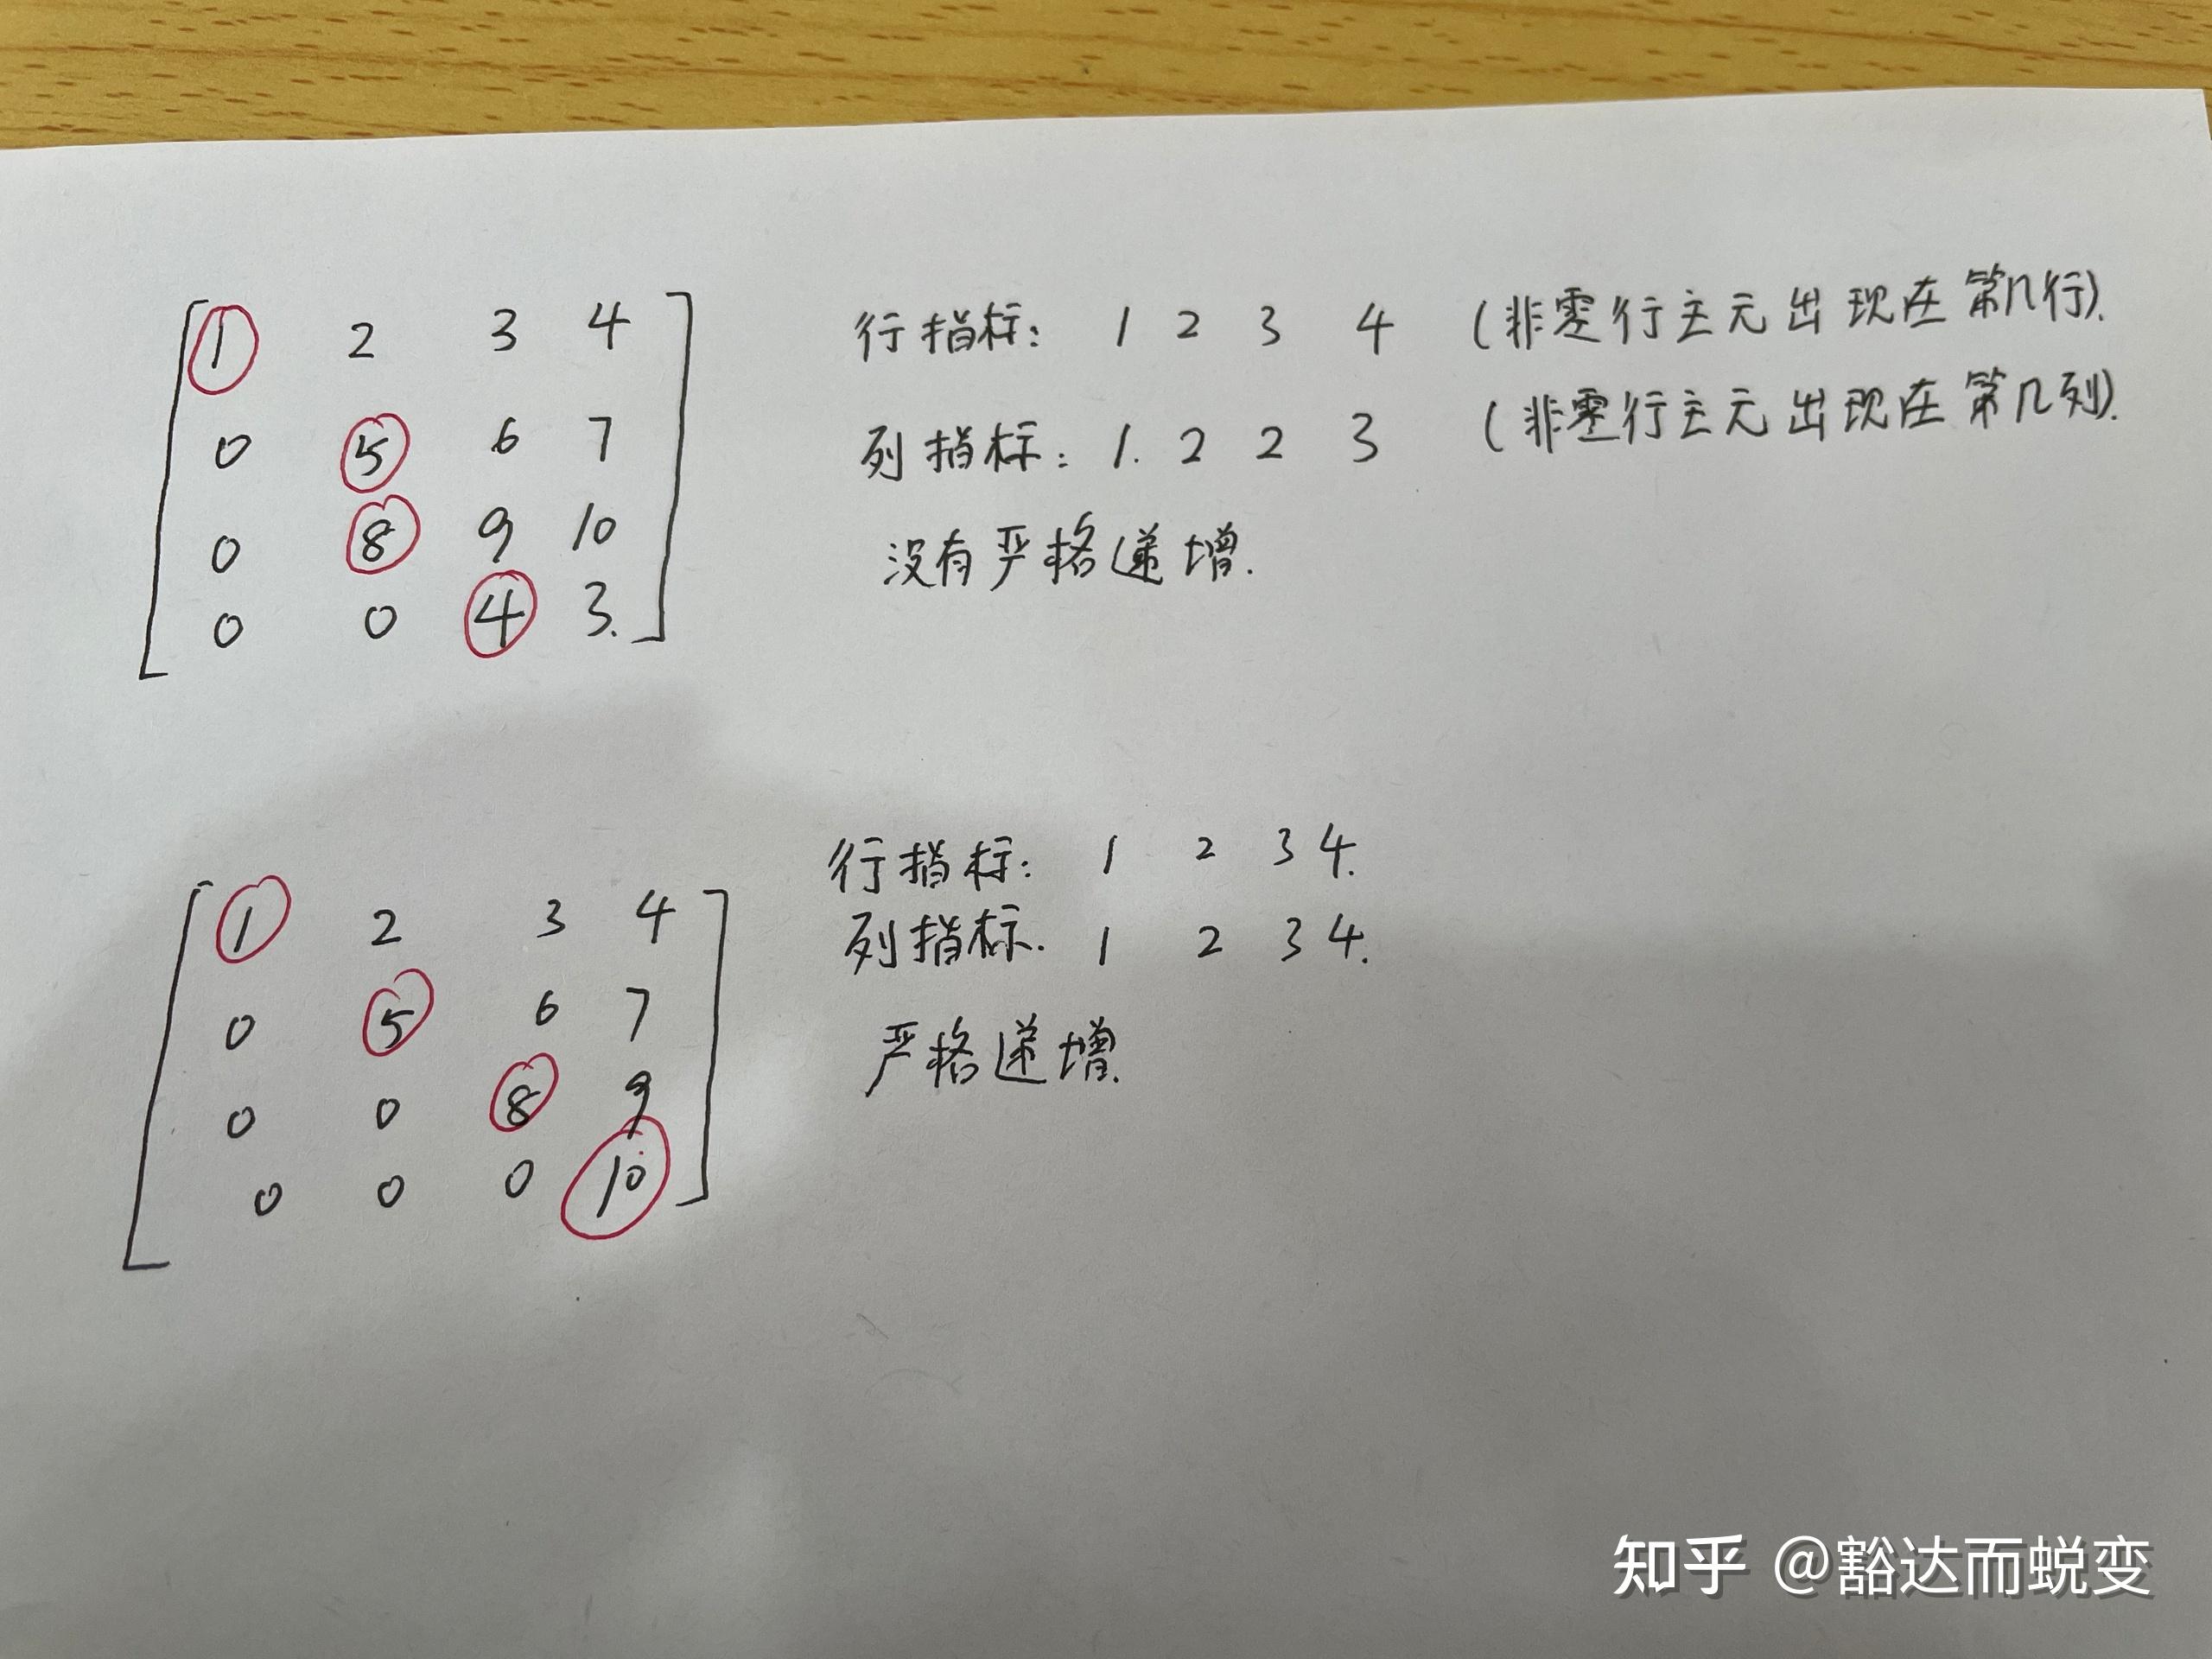 1 2 3 4 行指标: 1 2 3 4 (非零行主元出现在第几行).
0 5 6 7 列指标: 1. 2 2 3 (非零行主元出现在第几列).
0 8 9 10 没有严格递增.
0 0 4 3.
行指标: 1 2 3 4.
1 2 3 4 列指标. 1 2 3 4.
0 5 6 7 严格递增.
0 0 8 9
0 0 0 10
知乎 @豁达而蜕变